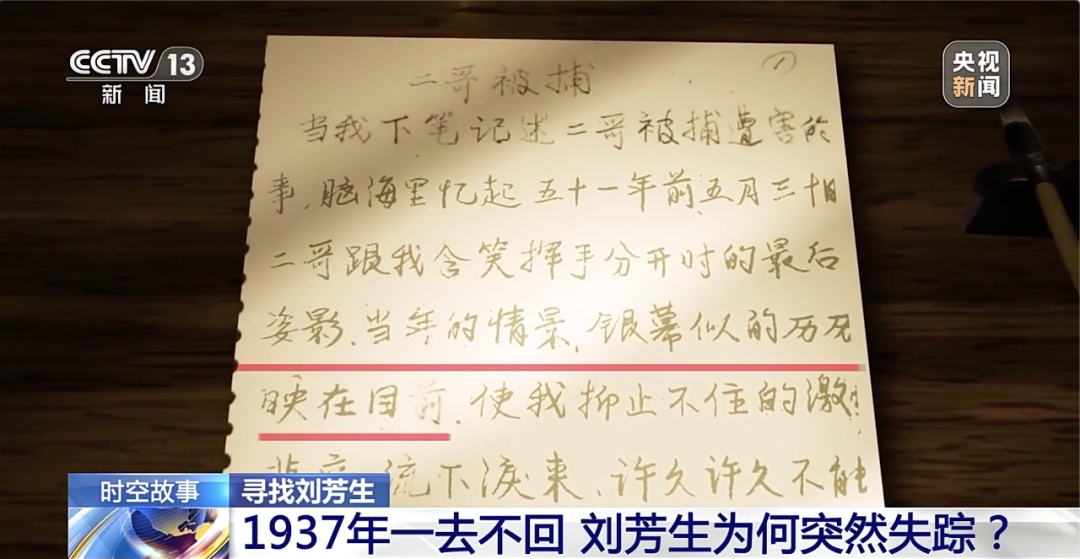 CCTV 13
新闻
央视
新闻
(1)
二哥被捕
当我下笔记述二哥被捕遭害的
事,脑海里忆起五十一年前五月三十日
二哥跟我含笑挥手分开时的最后
姿影、当年的情景,银幕似的历历
映在目前,使我抑止不住的激
流下淚来、许久许久不能
时空故事
寻找刘芳生
1937年一去不回 刘芳生为何突然失踪?